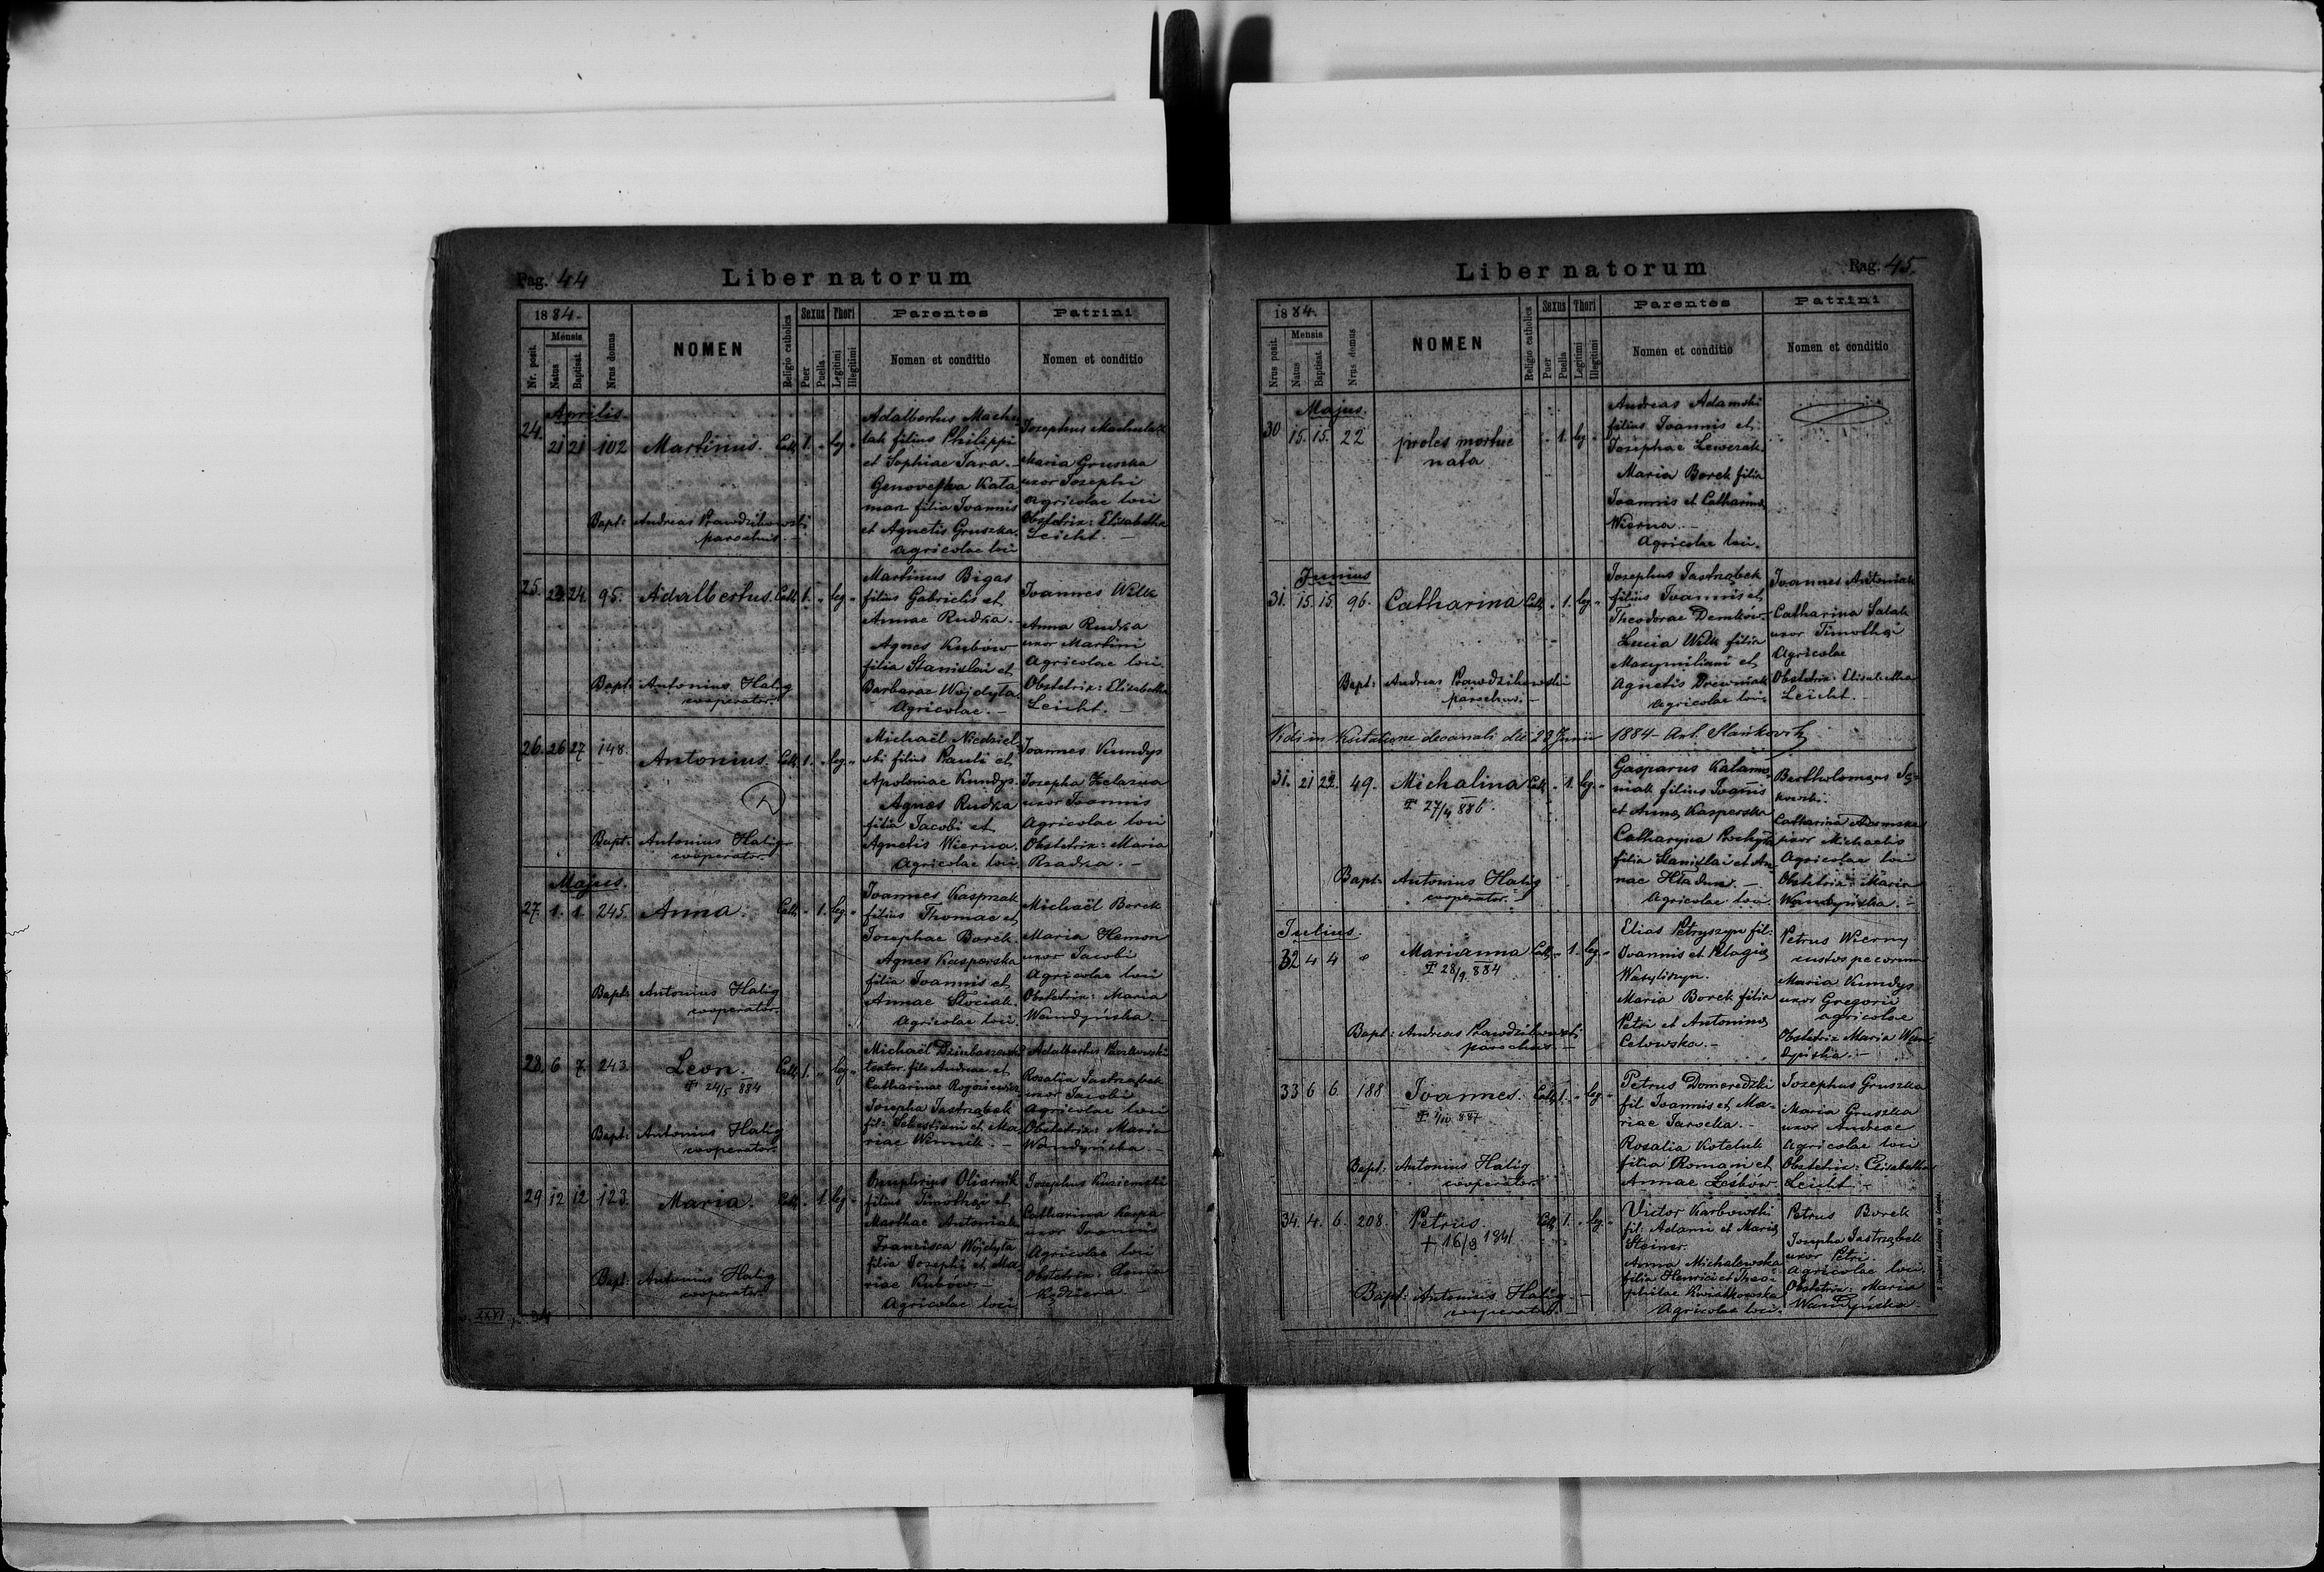 Pag. 44
Liber natorum
1884.
Mensis
Nr. posit.
Natus
Baptisat.
Nrus domus
NOMEN
Religio catholica
Sexus
Puer
Puella
Thori
Legitimi
Illegitimi
Parentes
Nomen et conditio
Patrini
Nomen et conditio
Aprilis
24. 21 21 102 Martinus. Cath. 1. " leg. "
Bapt: Andreas Prawdzikowski
parochus.
Adalbertus Machu-
lak filius Philippi
et Sophiae Tara.
Genovefa Kata
man filia Joannis
et Agnetis Gruszka.
agricolae loci
Josephus Machulak
Maria Gruszka
uxor Josephi
agricolae loci
Obstetrix: Elisabetha
Leicht.
25. 23. 24. 95. Adalbertus. Cath. 1. " leg. "
Bapt: Antonius Halig
cooperator.
Martinus Bigas
filius Gabrielis et
Annae Rudka.
Agnes Kubów
filia Stanislai et
Barbarae Wojdyta.
Agricolae.
Joannes Wilk
Anna Rudka
uxor Martini
Agricolae loci.
Obstetrix: Elisabetha
Leicht.
26. 26 27 148. Antonius. Cath. 1. " leg. "
Bapt: Antonius Halig
cooperator.
Michaël Niedziel-
ski filius Pauli et
Apoloniae Kundys.
Agnes Rudka
filia Jacobi et
Agnetis Wierna.
Agricolae loci.
Joannes Kundys
Josepha Zelazna
uxor Joannis
Agricolae loci
Obstetrix: Maria
Rzadka.
Majus.
27. 1. 1. 245. Anna. Cath. " 1. leg. "
Bapt: Antonius Halig
cooperator.
Joannes Kasprzak
filius Thomae et
Josephae Borek.
Agnes Kasperska
filia Joannis et
Annae Stociak.
Agricolae loci.
Michaël Borek
Maria Hemon
uxor Jacobi
Agricolae loci
Obstetrix: Maria
Wandyńska.
28. 6 7. 243 Leon. Cath. 1. " leg. "
24/5 884
Bapt: Antonius Halig
cooperator.
Michaël
textor. fil: Andreae et
Catharinae
Josepha Jastrzabek
fil: Sebastiani et Ma-
riae Winnik.
Adalbertus
Rosalia Jastrzabek
uxor Jacobi
Agricolae loci
Obstetrix: Maria
Wandyńska
29 12 12 123. Maria. Cath. " 1. leg. "
Bapt: Antonius Halig
cooperator.
Onuphrius Oliarnik
filius Timothei et
Marthae Antoniak
Francisca Wojdyta
filia Josephi et Ma
riae Kubów.
Agricolae loci
Josephus
Catharina
uxor Joannis
Agricolae loci
Obstetrix:
Kądziera
XXXI
Liber natorum
Rag. 45.
1884.
Mensis
Nrus posit.
Natus
Baptisat.
Nrus domus
NOMEN
Religio catholica
Sexus
Puer
Puella
Thori
Legitimi
Illegitimi
Parentes
Nomen et conditio
Patrini
Nomen et conditio
Majus.
30 15. 15. 22 proles mortue " 1. leg. "
nata
Andreas Adamski
filius Joannis et
Josephae Lewczak.
Maria Borek filia
Joannis et Catharinae
Wierna.
Agricolae loci.
Junius
31. 15. 15. 96. Catharina Cath. " 1. leg. "
Bapt: Andreas Prawdzikowski
parochus.
Josephus Jastrzabek
filius Joannis et
Theodorae Demków.
Lucia Wilk filia
Maxymiliani et
Agnetis Drewniak
agricolae loci
Joannes Antoniak
Catharina Salak
uxor Timothei
Agricolae
Obstetrix: Elisabetha
Leicht.
Vidi in visitatione decanali die 23 Junii 1884 - Ant.
31. 21 22. 49. Michalina Cath. " 1. leg. "
27/4 886.
Bapt: Antonius Halig
cooperator.
Gasparus Katama-
niak filius Joannis
et Annae Kasperska
Catharyna Prochyta
filia Stanislai et An-
nae Hładun.
Agricolae loci.
Bartholomaeus Sę-
kowski.
Catharina Adamska
uxor Michaelis
Agricolae loci
Obstetrix: Maria
Wandyńska.
Julius.
32 4 4 Marianna Cath. " 1. leg. "
28/9. 884
Bapt: Andreas Prawdzikowski
parochus
Elias Petryszyn fil:
Joannis et Pelagiae
Wasyliszyn.
Maria Borek filia
Petri et Antoninae
Celowska.
Petrus Wierny
custos pecorum
Maria Kundys
uxor Gregorii
agricolae
Obstetrix Maria Wan-
dyńska.
33 6 6. 188 Joannes. Cath. 1. " leg. "
Bapt: Antonius Halig
cooperator.
Petrus Domeredzki
fil Joannis et Ma-
riae Jarocka.
Rosalia Koteluk
filia Romani et
Annae Leśków.
Josephus Gruszka
Maria Gruszka
uxor Andreae
Agricolae loci
Obstetrix: Elisabetha
Leicht
34. 4. 6. 208. Petrus. Cath. 1. " leg. "
+ 16/9 1841
Bapt: Antonius Halig.
cooperator.
Victor Karbowski
fil: Adami et Mariae
Steiner.
Anna Michalewska
filia Henrici et Theo-
philae Kwiatkowska
Agricolae loci.
Petrus Borek
Josepha Jastrzabek
uxor Petri.
Agricolae loci
Obstetrix: Maria
Wandyńska